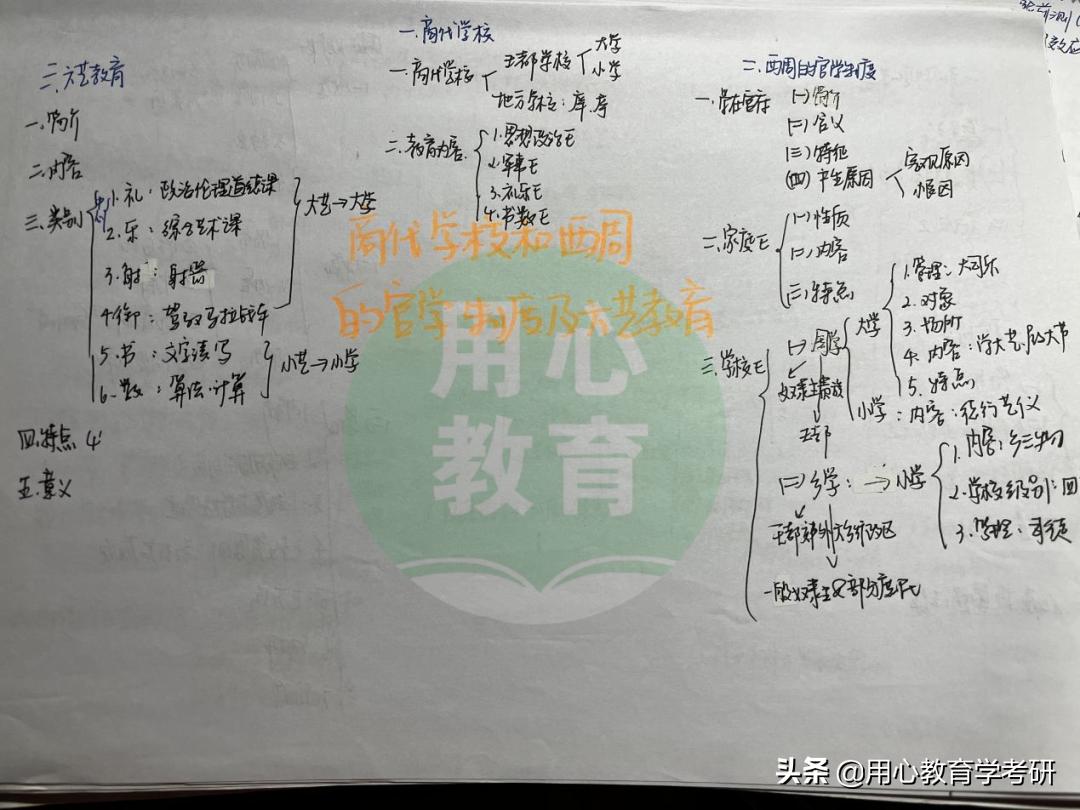 一.商代学校
一.商代学校
王都学校
大学
小学
地方学校：庠.序
二.教育内容
1.思想政治E
2.军事E
3.礼乐E
4.书数E
商代学校和西周
的官学制度及六艺教育
二.西周的官学制度
一.学在官府
(一)简介
(二)含义
(三)特征
(四)产生原因
客观原因
根因
二.家庭E
(一)性质
(二)内容
(三)特点
三.学校E
(一)国学
奴隶主贵族
王都
大学
1.管理：大司乐
2.对象
3.场所
4.内容：学大艺.履大节
5.特点
小学：内容：德行艺仪
(二)乡学：→小学
王都郊外六乡行政区
一般奴隶主及部分庶民
1.内容：乡三物
2.学校级别：四
3.管理：司徒
三.六艺教育
一.简介
二.内容
三.类别
1.礼：政治伦理道德课
2.乐：综合艺术课
3.射：射箭
4.御：驾驭马拉战车
大艺→大学
5.书：文字读写
6.数：算法.计算
小艺→小学
四.特点 4'
五.意义
用心
教育
头条 @用心教育学考研